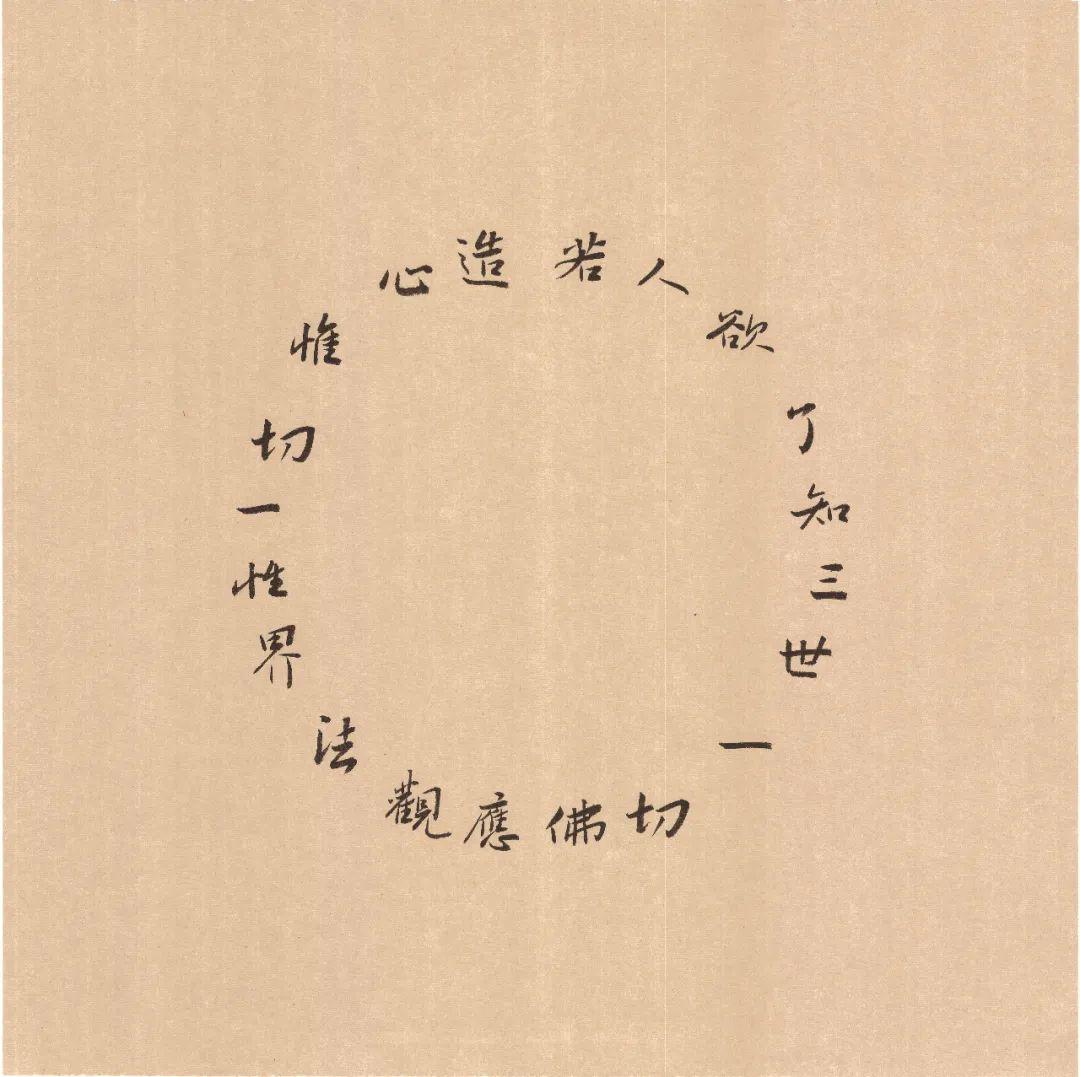 若人欲了知三世一切佛應觀法界性一切惟心造